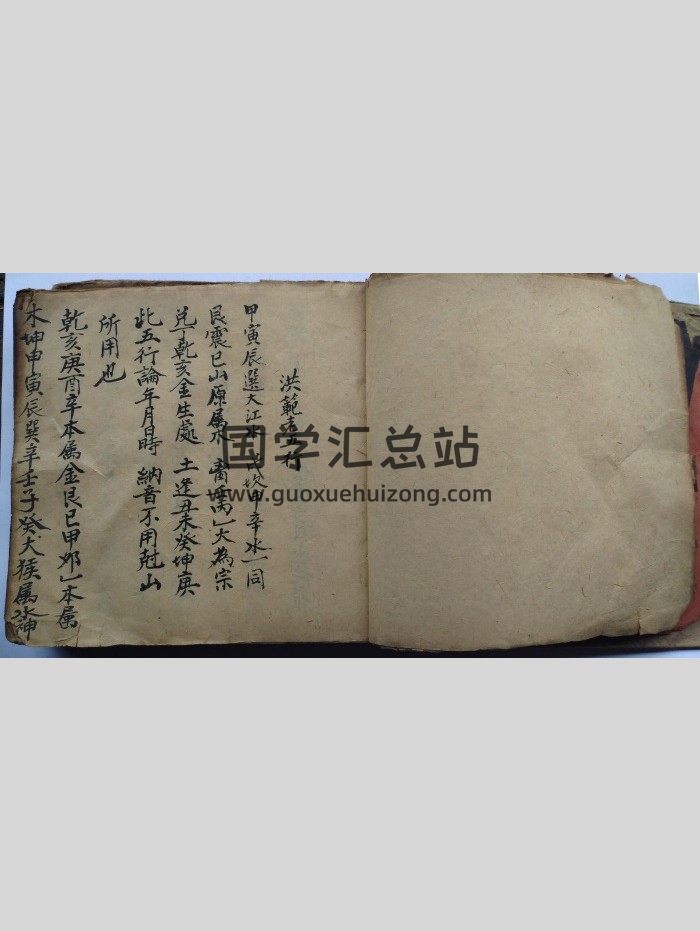 洪範五行
甲寅辰選大江水 坎申辛水一同
艮震巳山原属木 离 丙乙火為宗
兑丁乾亥金生處 土逢丑未癸坤庚
此五行論年月日時 納音不用尅山
所用也
乾亥庚酉辛本属金艮巳甲卯乙本属
木坤申寅辰巽辛壬子癸大 属水神
国学汇总站
www.guoxuehuizong.com